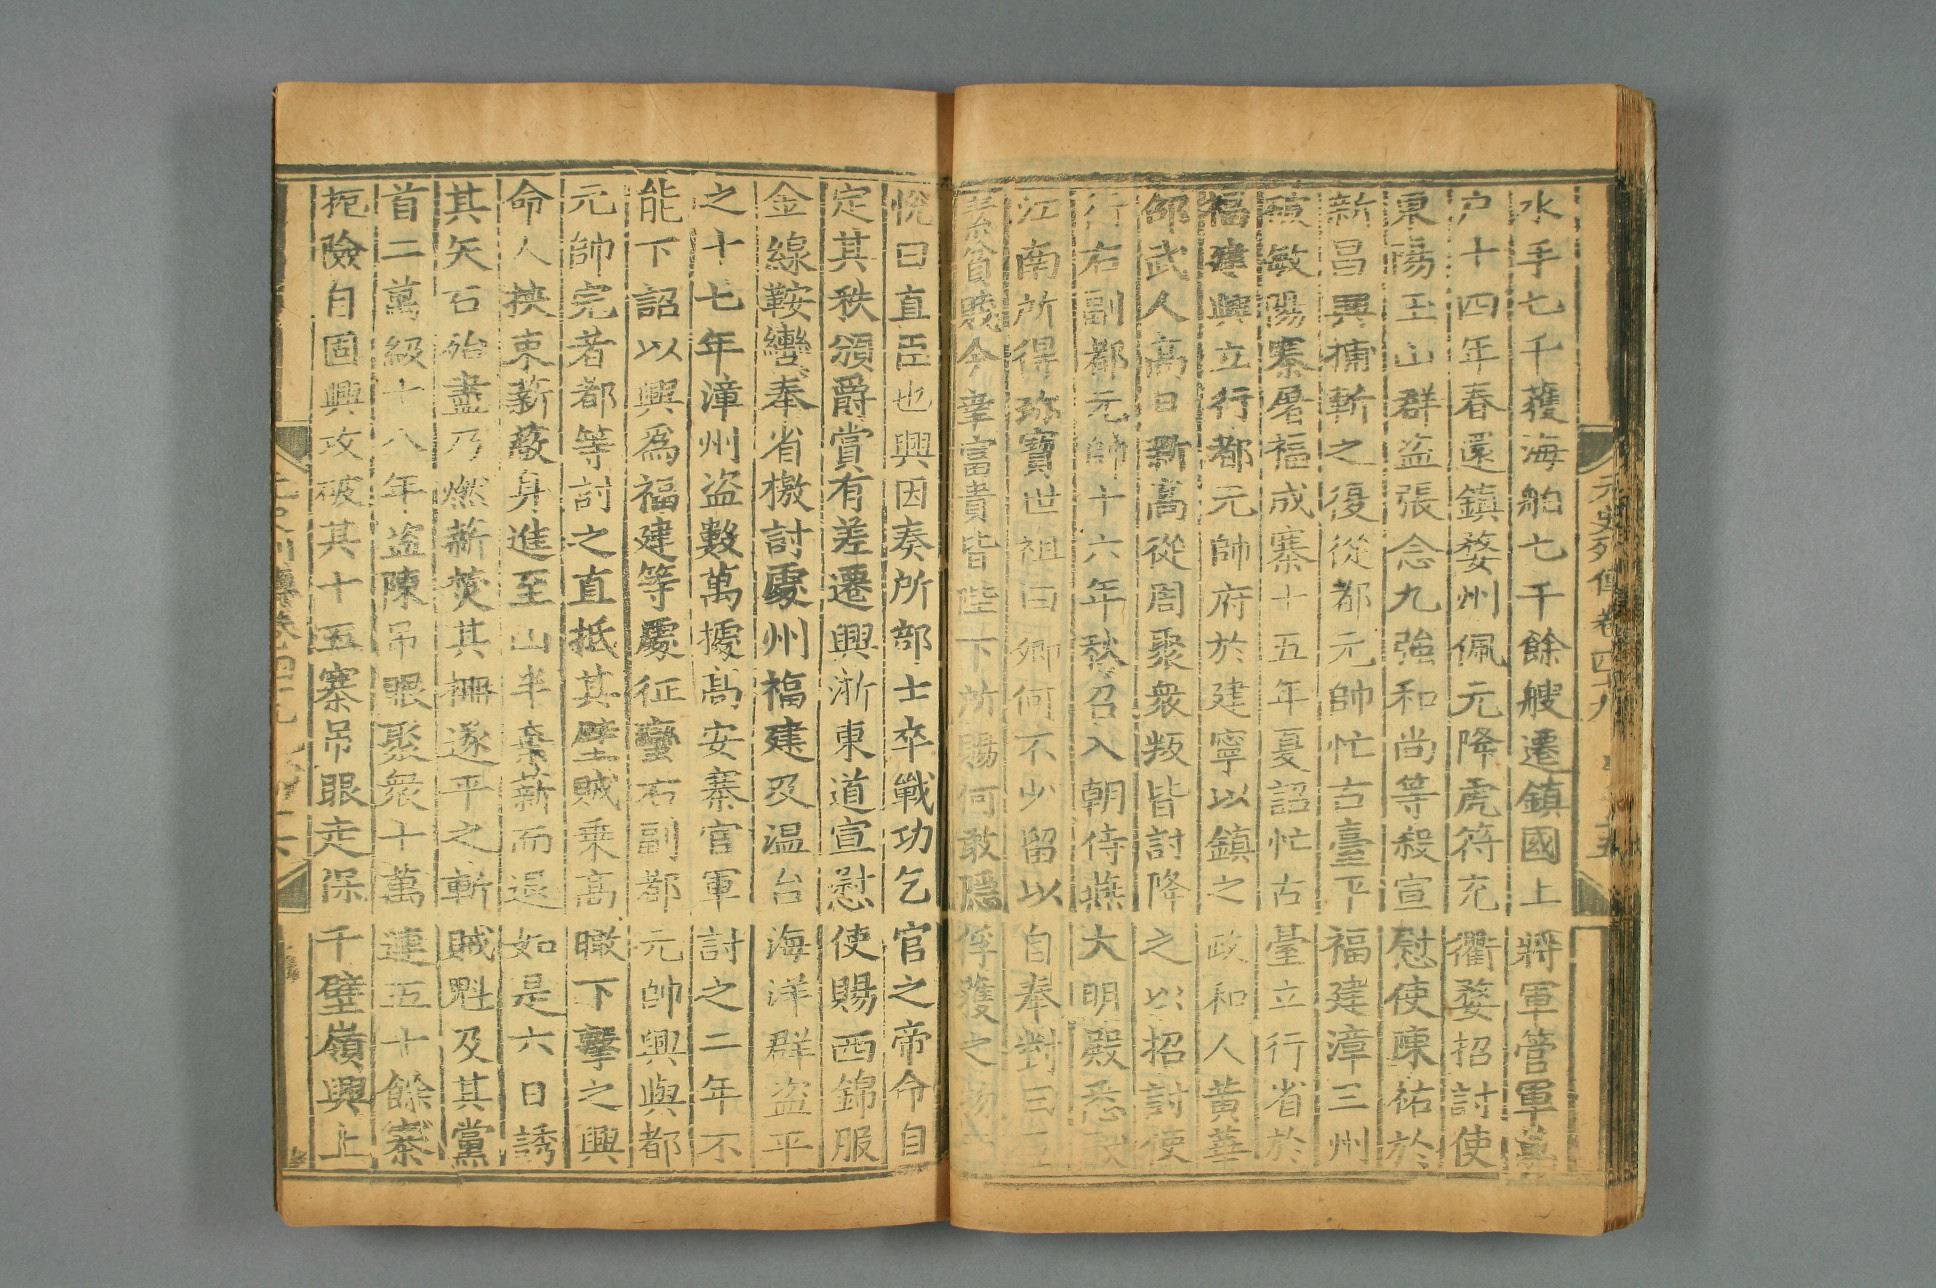 元史列傳卷四十九
水手七千獲海舶七千餘艘遷鎮國上將軍管軍萬
户十四年春還鎮婺州佩元降虎符充衢婺招討使
東陽玉山群盜張念九強和尚等殺宣慰使陳祐於
新昌興捕斬之復從都元帥忙古臺平福建漳三州
破敏陽寨屠福成寨十五年夏詔忙古臺立行省於
福建興立行都元帥府於建寧以鎮之政和人黃華
邵武人高日新高從周聚衆叛皆討降之以招討使
行右副都元帥十六年秋召入朝侍燕大明殿悉獻
江南所得珍寶世祖曰卿何不少留以自奉對曰臣
素貧賤今幸富貴皆陛下所賜何敢隱俘獲之物帝
悅曰直臣也興因奏所部士卒戰功乞官之帝命自
定其秩頒爵賞有差遷興浙東道宣慰使賜西錦服
金線鞍轡奉省檄討處州福建及温台海洋群盜平
之十七年漳州盜數萬據高安寨官軍討之二年不
能下詔以興爲福建等處征蠻右副都元帥興與都
元帥完者都等討之直抵其壁賊乘高瞰下擊之興
命人挾束薪蔽身進至山半棄薪而退如是六日誘
其矢石殆盡乃燃薪焚其柵遂平之斬賊魁及其黨
首二萬級十八年盜陳吊眼聚衆十萬連五十餘寨
扼險自固興攻破其十五寨吊眼走保千壁嶺興上